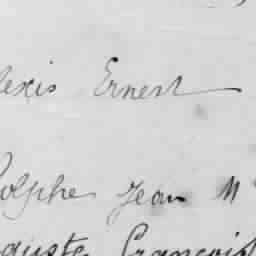 lexis Ernest
olphe Jean M
guste François